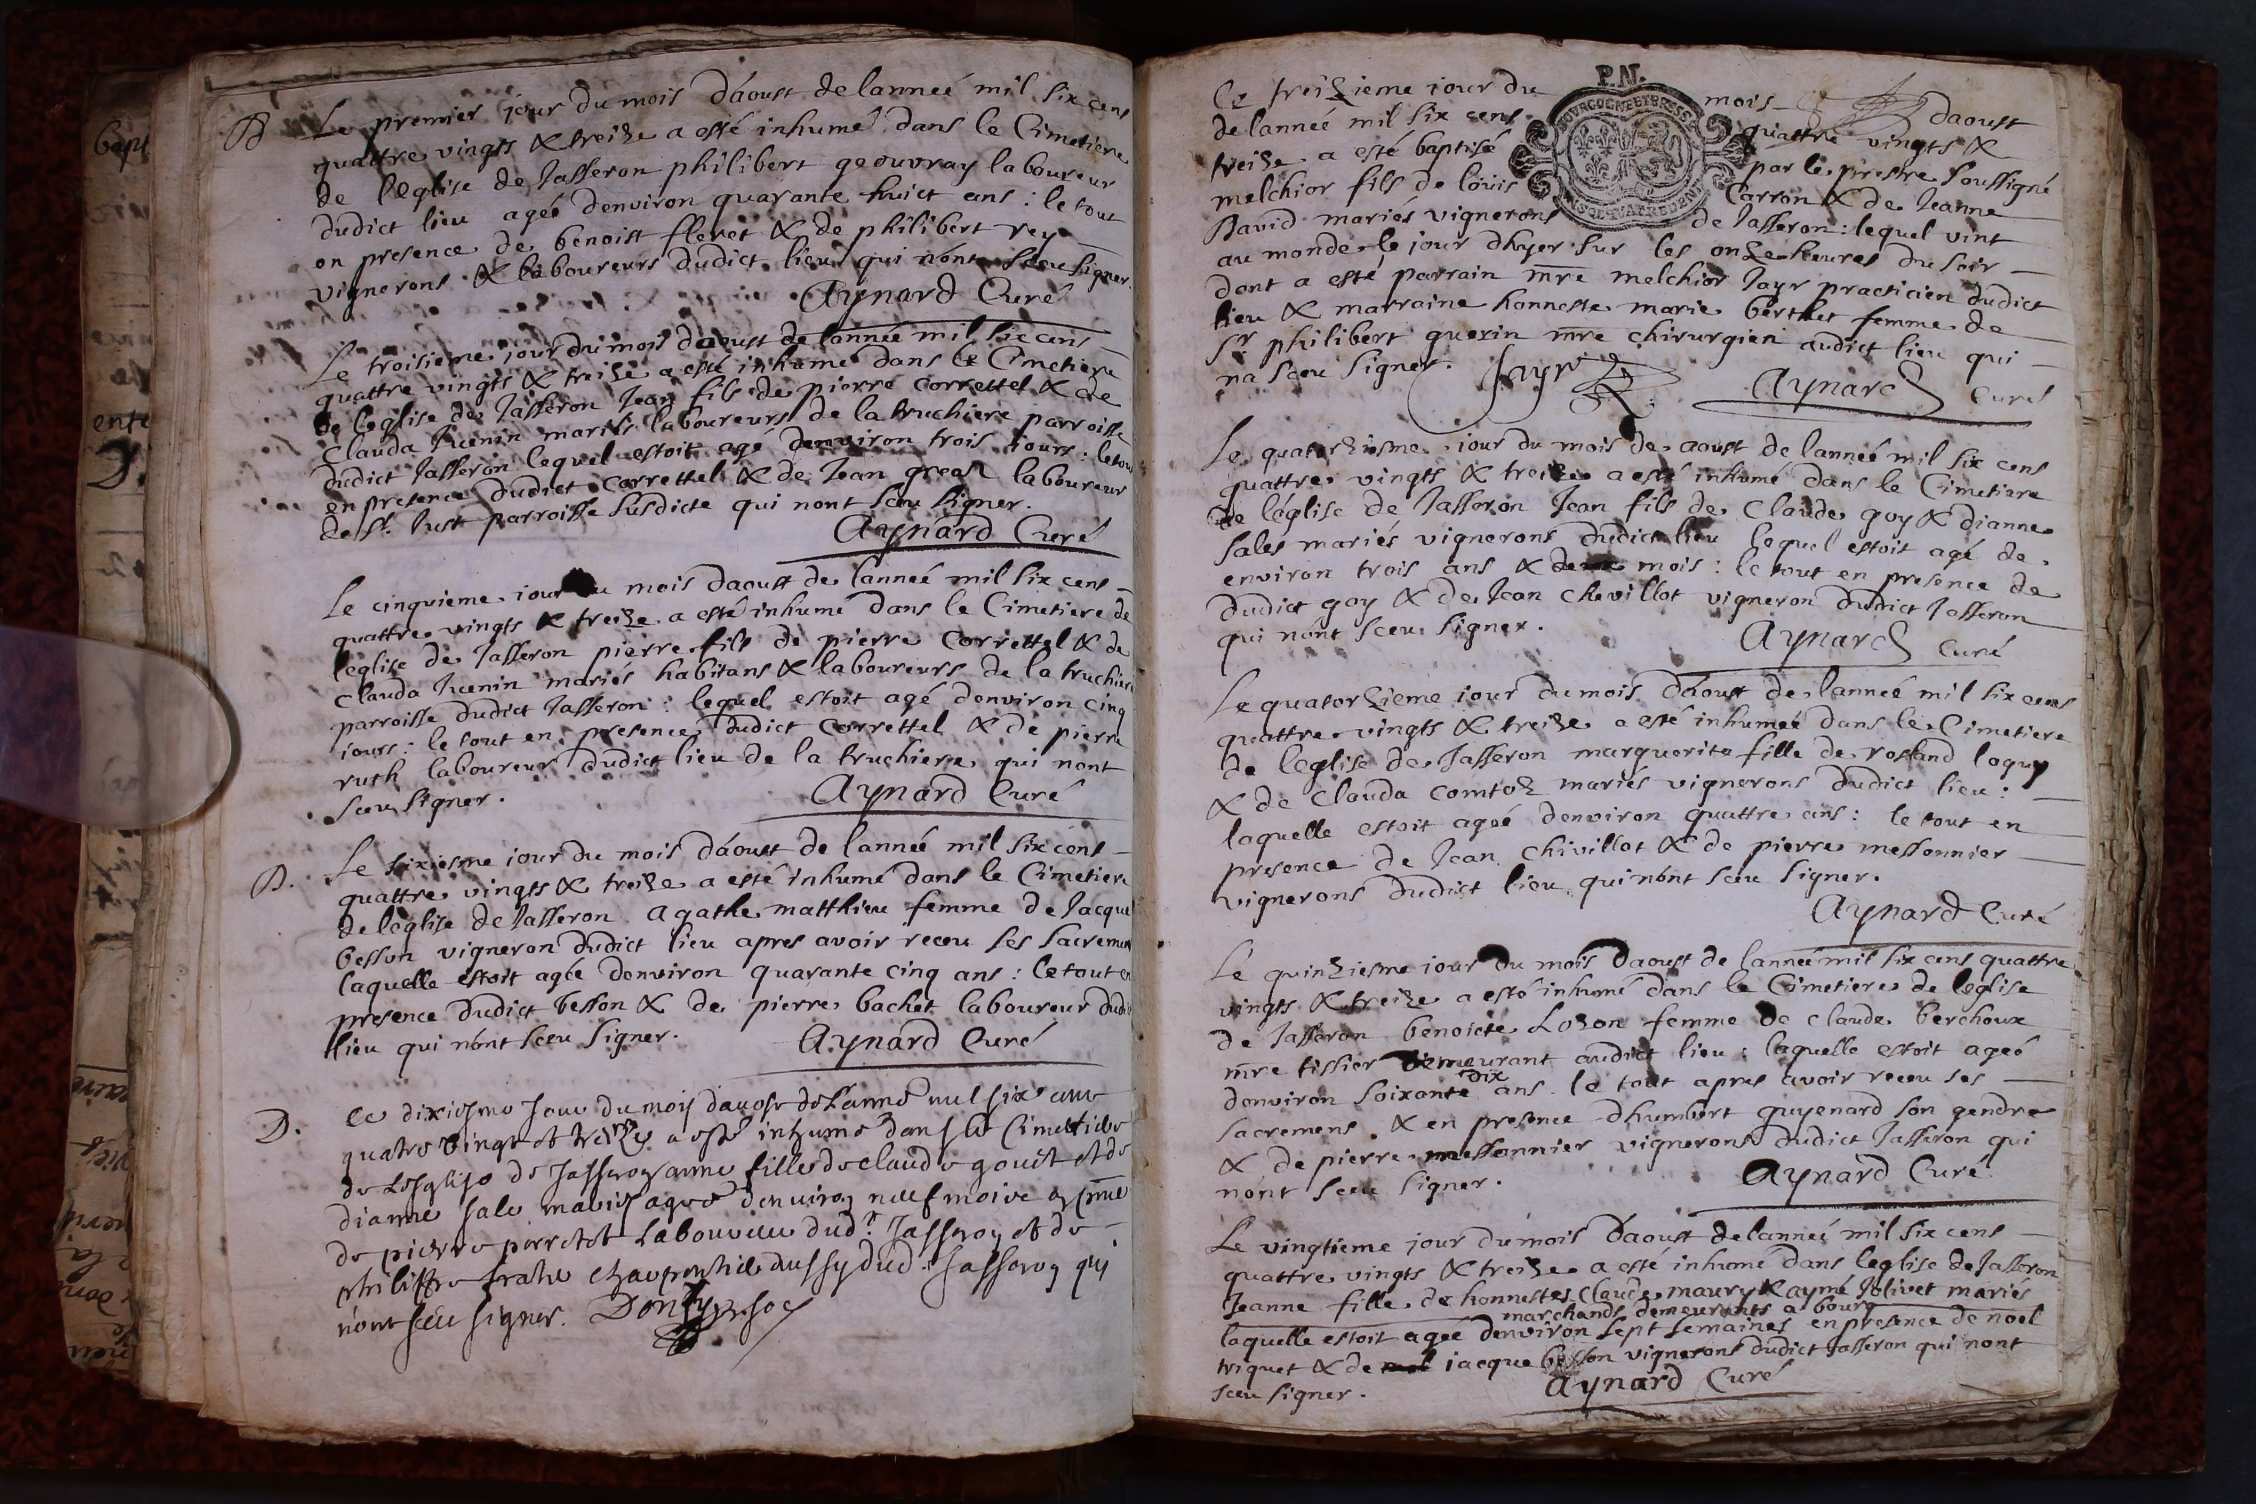 B Le premier jour du mois d'aoust de lanneé mil six cens
quattre vingts & treize a esté inhumé dans le Cimetiere
de leglise de Jasseron philibert geouvray laboureur
dudict lieu ageé denviron quarante huict ans : le tout
en presence de benoist fleret & de philibert rey
vignerons & laboureurs dudict lieu qui n'ont sceu signer.
Aynard Curé
Le troisieme jour du mois daoust de lannée mil six cens
quattre vingts & treize a esté inhumé dans le Cimetiere
de leglise de Jasseron Jean fils de pierre Correttel & de
Clauda Juenin mariés laboureurs de la truchiere parroisse
dudict Jasseron lequel estoit agé denviron trois jours : le tout
en presence dudict Correttel & de Jean greas laboureur
de St. Just parroisse susdicte qui nont sceu signer.
Aynard Curé
Le cinquieme iour du mois daoust de lanneé mil six cens
quattre vingts & treize a esté inhumé dans le Cimetiere de
leglise de Jasseron pierre fils de pierre Correttel & de
Clauda Juenin mariés habitans & laboureurs de la truchiere
parroisse dudict Jasseron : lequel estoit agé denviron cinq
iours : le tout en presence dudict Correttel & de pierre
ruth laboureur dudict lieu de la truchiere qui nont
sceu signer.
Aynard Curé
D. Le sixiesme iour du mois d'aoust de lanneé mil six cens
quattre vingts & treize a esté inhumé dans le Cimetiere
de leglise de Jasseron Agathe matthieu femme de Jacque
besson vigneron dudict lieu apres avoir receu ses sacremens
laquelle estoit agée denviron quarante cinq ans : le tout en
presence dudict besson & de pierre bachet laboureur dudict
lieu qui n'ont sceu signer.
Aynard Curé
D. Ce dixiesme Jour du mois daoust de Lanné mil six cens
quatre vingt et treize a esté inhumé dans le Cimetiere
de Lesglise de Jasseron anne fille de claude gouit et de
dianne sale mariés ageé denviron neuf mois en presence
de pierre perretet Laboureur dudt. Jasseron et de
philippe aussy dud. Jasseron qui
n'ont sceu signer.
P.N.
BOURGOGNE ET BRESSE
Le treizieme iour du mois daoust
de lanneé mil six cens quattre vingts &
treize a esté baptisé par le prestre soussigné
melchior fils de löüis Carron & de Jeanne
David mariés vignerons de Jasseron : lequel vint
au monde le jour dhyer sur les onze heures du soir
dont a esté parrain mre melchior Jayr practicien dudict
lieu & marraine honneste marie berthet femme de
Sr philibert guerin mre chirurgien audict lieu qui
na sceu signer. Jayr Aynard Curé
Le quatorziesme iour du mois de aoust de lanneé mil six cens
quattre vingts & treize a esté inhumé dans le Cimetiere
de l'église de Jasseron Jean fils de Claude goy & dianne
Sales mariés vignerons dudict lieu lequel estoit agé de
environ trois ans & deux mois : le tout en presence de
dudict goy & de Jean Chevillot vigneron dudict Jasseron
qui n'ont sceu signer.
Aynard Curé
Le quatorzieme iour du mois d'aoust de lanneé mil six cens
quattre vingts & treize a esté inhumeé dans le Cimetiere
de leglise de Jasseron marguerite fille de rolland loquy
& de Clauda Comtoz mariés vignerons dudict lieu :
laquelle estoit ageé denviron quattre ans : le tout en
presence de Jean Chivillot & de pierre messonnier
vignerons dudict lieu qui n'ont sceu signer.
Aynard Curé
Le quinziesme iour du mois daoust de lanneé mil six cens quattre
vingts & treize a esté inhumé dans le Cimetiere de leglise
de Jasseron benoicte Lozon femme de Claude berchoux
mre tissier demeurant audict lieu : laquelle estoit ageé
denviron soixante dix ans. le tout apres avoir receu ses
sacremens & en presence dhumbert guyenard son gendre
& de pierre messonnier vignerons dudict Jasseron qui
n'ont sceu signer.
Aynard Curé
Le vingtieme jour du mois d'aoust de lanneé mil six cens
quattre vingts & treize a esté inhumé dans leglise de Jasseron
Jeanne fille de honnestes Claude maury & aymé Jolivet mariés
marchands demeurants a bourg
laquelle estoit ageé denviron sept semaines en presence de noel
triquet & de iacque besson vignerons dudict Jasseron qui nont
sceu signer.
Aynard Curé